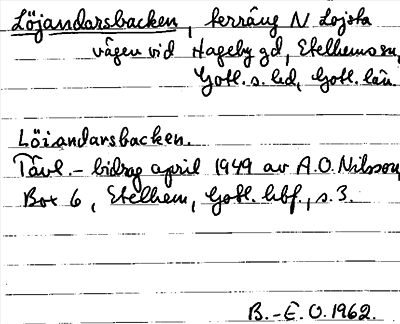 Löjandarsbacken, terräng N Lojsta
vägen vid Hageby gd, Etelhems sn,
Gotl. s. hd, Gotl. län.
Löiandarsbacken.
Tävl.-bidrag april 1949 av A.O. Nilsson,
Box 6, Etelhem, Gotl. hbf., s. 3.
B.-E. O. 1962.